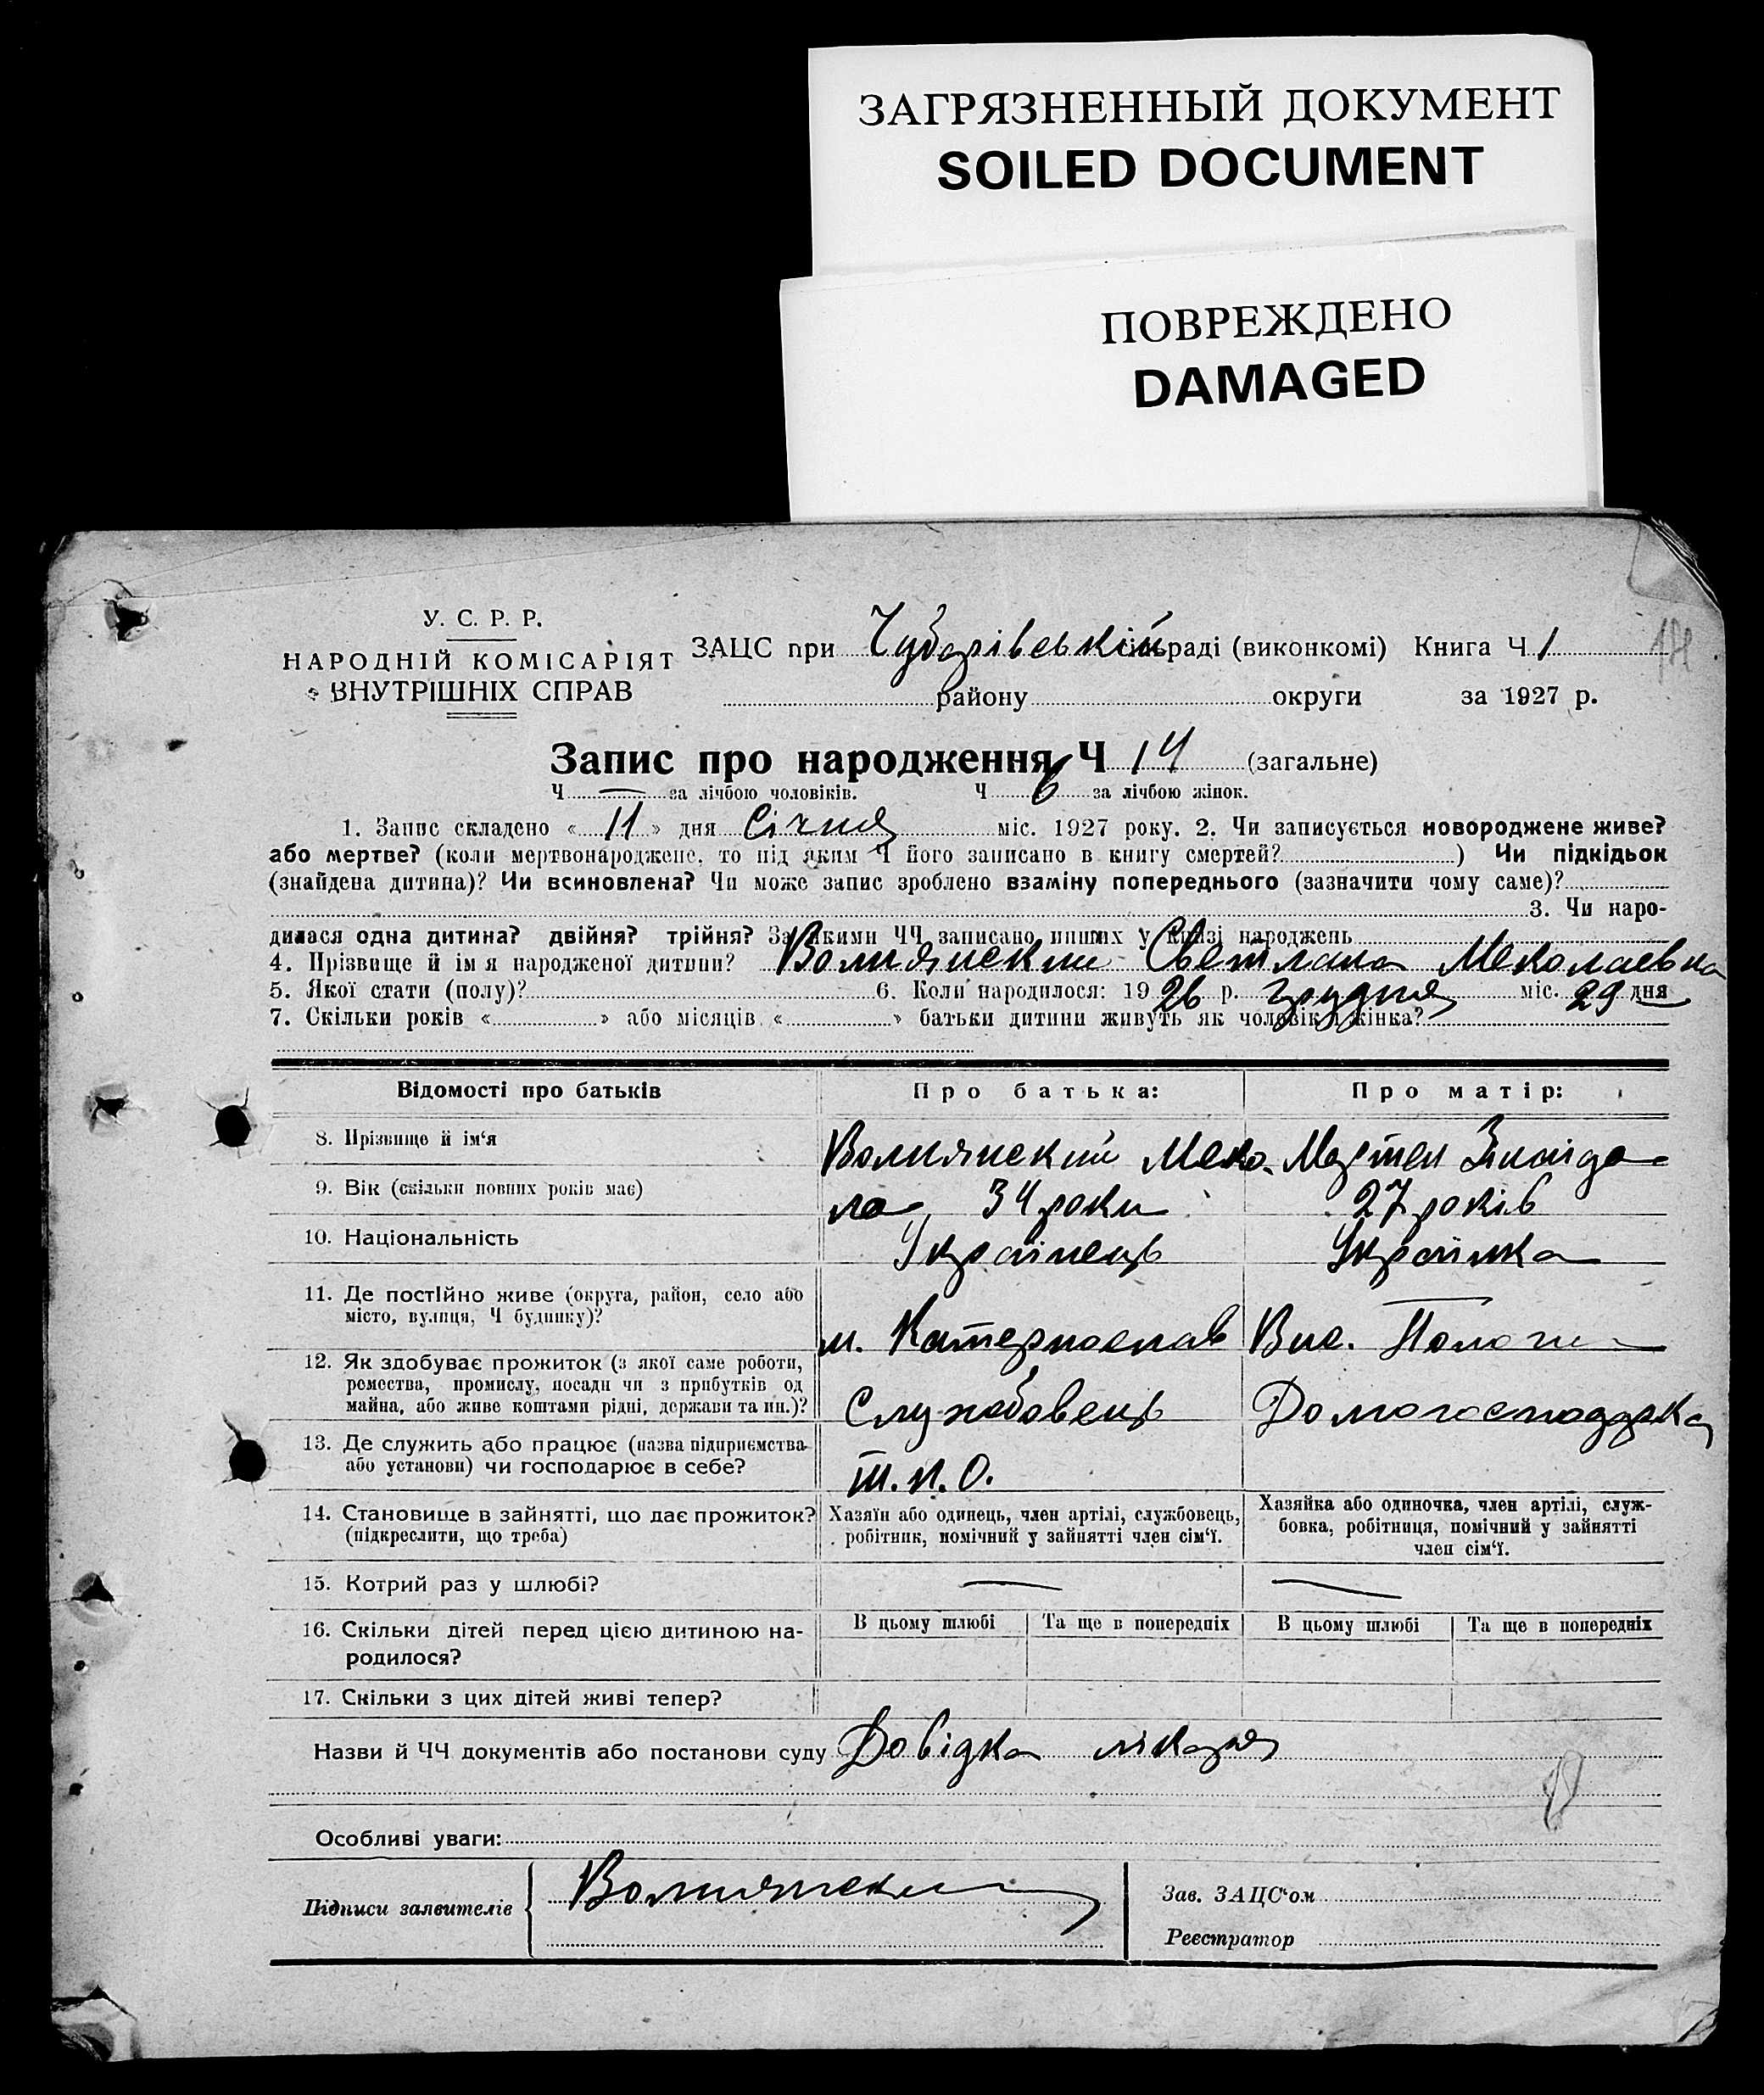 ЗАГРЯЗНЕННЫЙ ДОКУМЕНТ
SOILED DOCUMENT
ПОВРЕЖДЕНО
DAMAGED
У. С. Р. Р.
НАРОДНІЙ КОМІСАРІЯТ
ВНУТРІШНІХ СПРАВ
ЗАЦС при Чубарівській раді (виконкомі) Книга Ч 1
району округи за 1927 р.
Запис про народження Ч 14 (загальне)
Ч — за лічбою чоловіків. Ч 6 за лічбою жінок.
1. Запис складено « 11 » дня Січня міс. 1927 року. 2. Чи записується новороджене живе?
або мертве? (коли мертвонароджене, то під яким Ч його записано в книгу смертей? ) Чи підкідьок
(знайдена дитина)? Чи всиновлена? Чи може запис зроблено взаміну попереднього (зазначити чому саме)?
3. Чи наро-
дилася одна дитина? двійня? трійня? За якими ЧЧ записано инших у книзі народжень
4. Прізвище й ім я народженої дитини? Волнянский Светлана Меколаевна
5. Якої стати (полу)? 6. Коли народилося: 19 26 р. грудня міс. 29 дня
7. Скільки років « » або місяців « » батьки дитини живуть як чоловік і жінка?
Відомості про батьків Про батька: Про матір:
8. Прізвище й ім‘я Волнянский Меко- Мартен Зинаїда
9. Вік (скільки повних років має) ла 34 роки 27 років
10. Національність Українець Українка
11. Де постійно живе (округа, район, село або
місто, вулиця, Ч будинку)? м. Катернослав Вис. Пологи
12. Як здобуває прожиток (з якої саме роботи,
ремества, промислу, посади чи з прибутків од
майна, або живе коштами рідні, держави та ин.)? Службовець Домогосподарка
13. Де служить або працює (назва підприємства
або установи) чи господарює в себе? Т.П.О.
14. Становище в зайнятті, що дає прожиток?
(підкреслити, що треба)
Хазяїн або одинець, член артілі, службовець,
робітник, помічний у зайнятті член сім‘ї.
Хазяйка або одиночка, член артілі, служ-
бовка, робітниця, помічний у зайнятті
член сім‘ї.
15. Котрий раз у шлюбі? — —
16. Скільки дітей перед цією дитиною на-
родилося?
В цьому шлюбі Та ще в попередніх В цьому шлюбі Та ще в попередніх
17. Скільки з цих дітей живі тепер?
Назви й ЧЧ документів або постанови суду Довідка лікаря
Особливі уваги:
Підписи заявителів Волнянский
Зав. ЗАЦС‘ом
Реєстратор